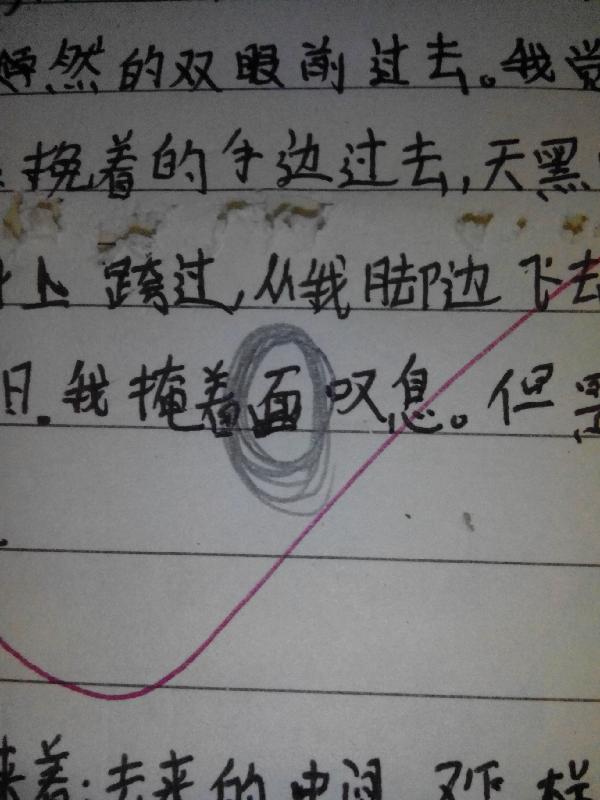 然的双眼前过去。我觉
挽着的手边过去,天黑
上跨过,从我脚边飞去
日.我掩着面叹息。但
来着:去来的中间